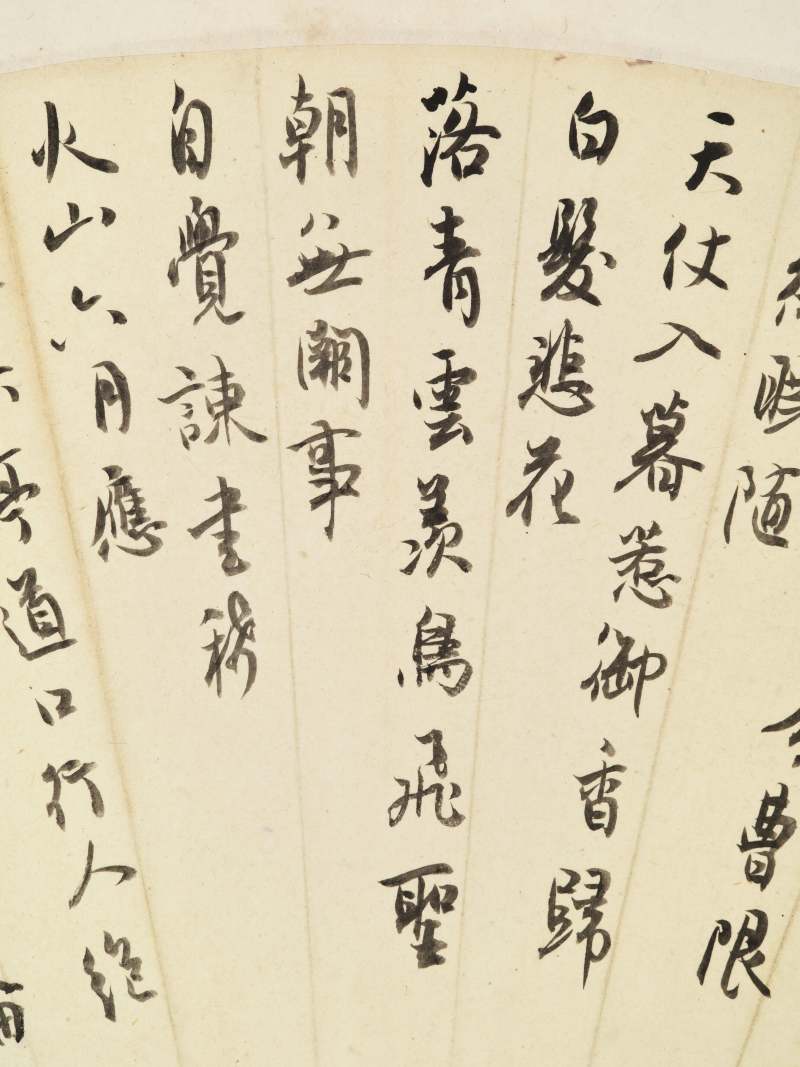 曹限
曉隨
天仗入暮惹御香歸
白髮悲花
落青雲羨鳥飛聖
朝無闕事
自覺諫書稀
火山六月應
亭道口行人絕